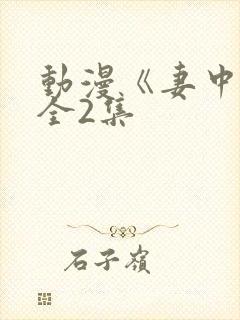 動漫《妻中
全2集
石子嶺